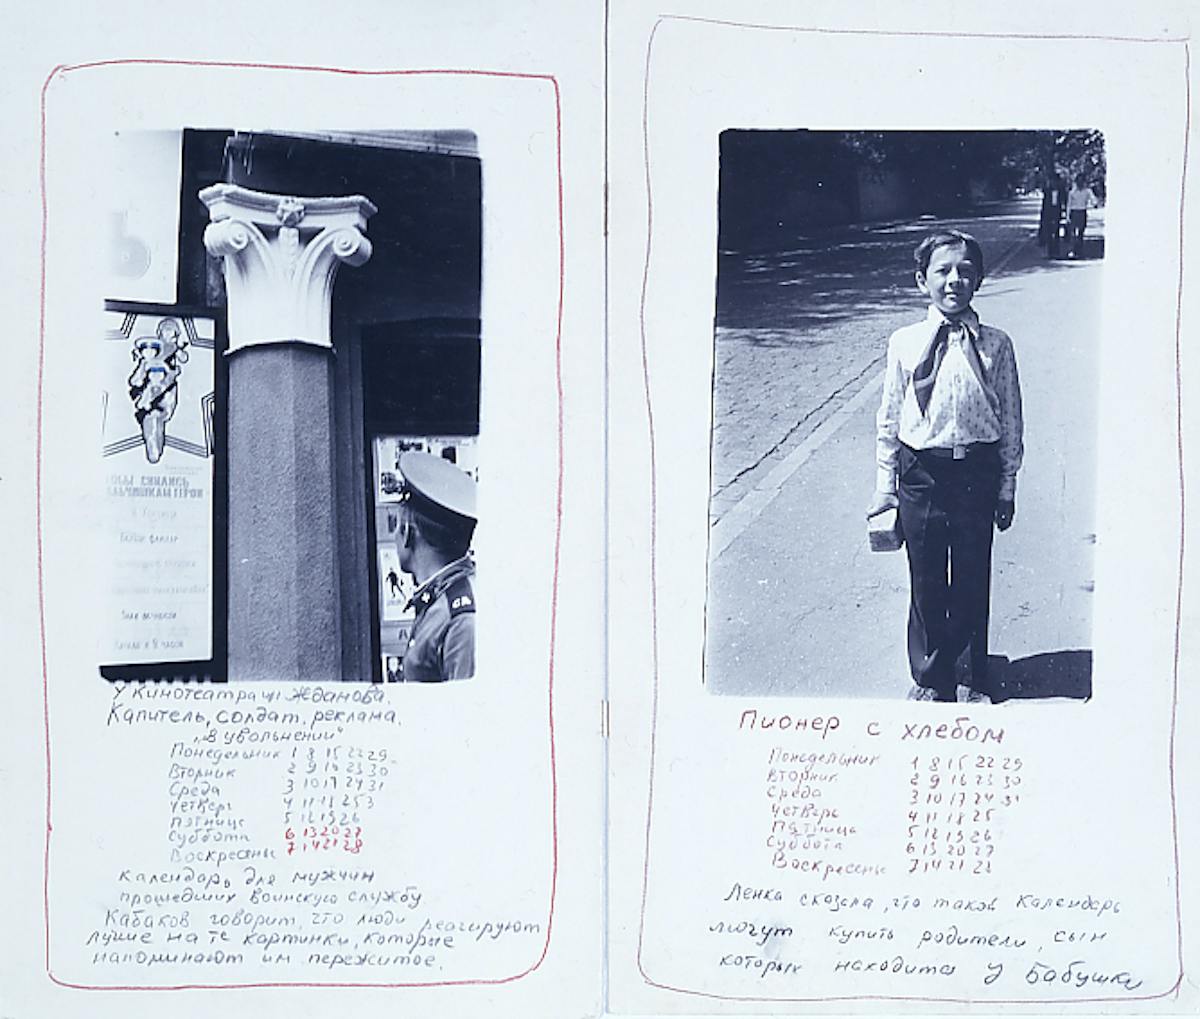 СНИЛИСЬ
ГЕРОИ
У кинотеатра им Жданова.
Капитель, солдат, реклама.
„В увольнении“
Понедельник 1 8 15 22 29
Вторник 2 9 16 23 30
Среда 3 10 17 24 31
Четверг 4 11 18 25 3
Пятнице 5 12 19 26
Суббота 6 13 20 27
Воскресенье 7 14 21 28
Календарь для мужчин
прошедших воинскую службу
Кабаков говорит, что люди реагируют
лучше на те картинки, которые
напоминают им пережитое.
Пионер с хлебом
Понедельник 1 8 15 22 29
Вторник 2 9 16 23 30
Среда 3 10 17 24 31
Четверг 4 11 18 25
Пятница 5 12 19 26
Суббота 6 13 20 27
Воскресенье 7 14 21 28
Ленка сказала, что такой календарь
могут купить родители, сын
которых находится у бабушки